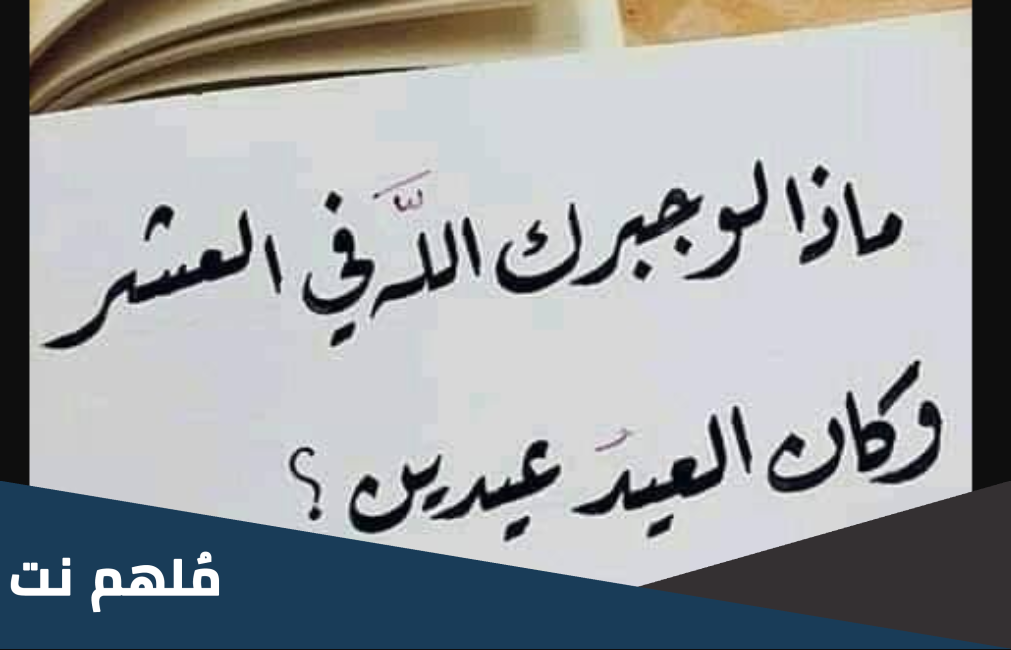 ماذا لو جبرك اللّه في العشر
وكان العيدَ عيدين ؟
مُلهم نت